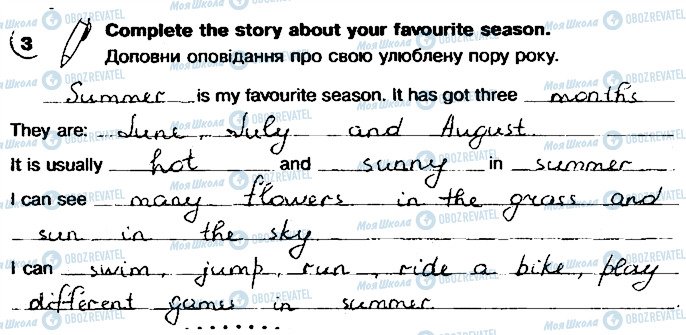 3 Complete the story about your favourite season.
Доповни оповідання про свою улюблену пору року.
Summer is my favourite season. It has got three months
They are: June, July and August.
It is usually hot and sunny in summer
I can see many flowers in the grass and
sun in the sky.
I can swim, jump, run, ride a bike, play
different games in summer.